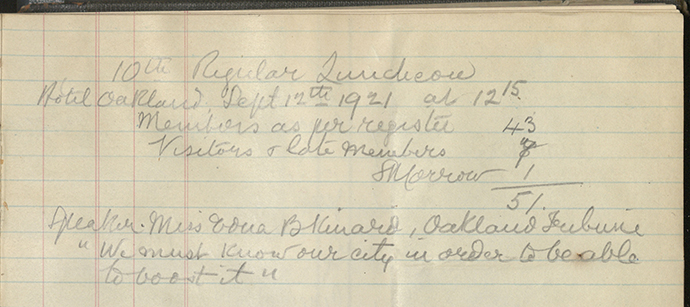 10th Regular Luncheon
Hotel Oakland, Sept 12th 1921 at 12 15
Members as per register 43
Visitors & late members 7
S Morrow 1
51.
Speaker. Miss Edna B Kinard, Oakland Tribune
"We must know our city in order to be able
to boost it"